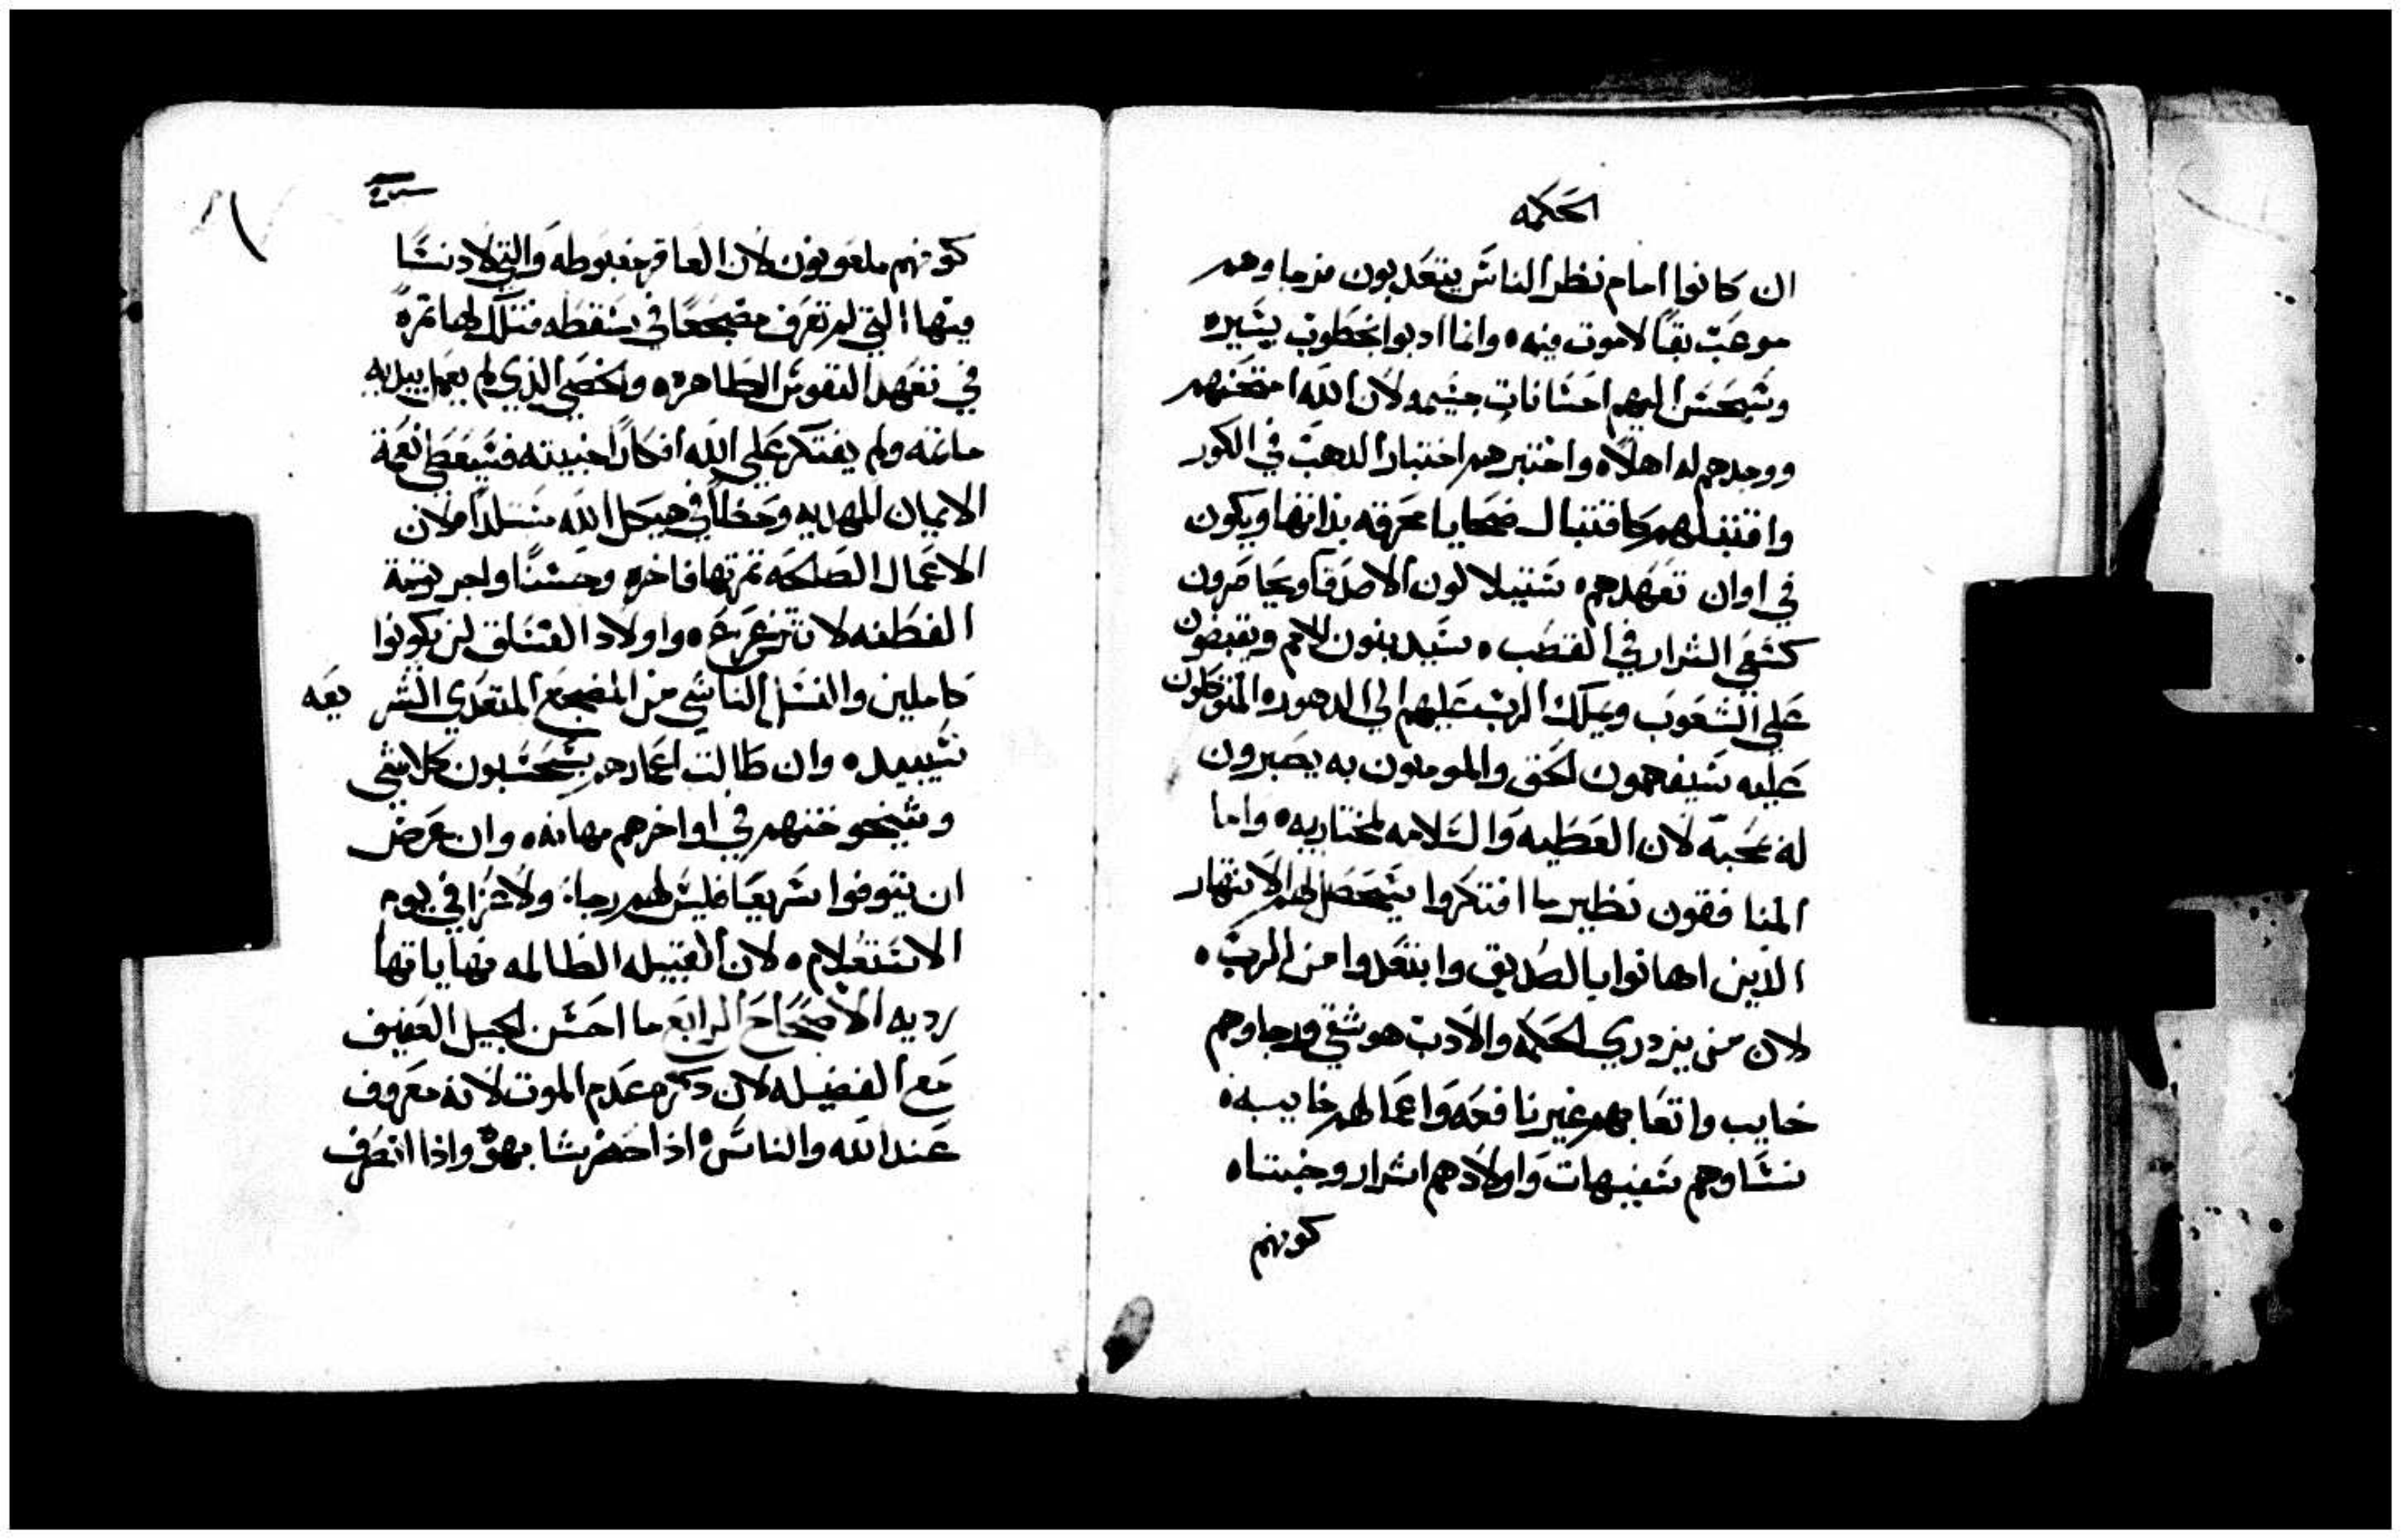 الحكمه
ان كانوا امام نظر الناس يتعدبون فرجاوهم
موعب بقا لا موت فيه ه وانما ادبوا بخطوب يسيره
وسيحسن اليهم احسانات جسيمه لان الله امتحنهم
ووجدهم له اهلا ه واختبرهم اختبار الدهب في الكور
واقتبلهم كاقتبال ضحايا محرقه بذاتها ويكون
في اوان تعهدهم ه سيتلالون الاصدقا ويحاضرون
كسعي الشرار في القصب ه سيدينون للامم ويقبضون
علي الشعوب ويملك الرب عليهم الي الدهور ه المتوكلون
عليه سيفهمون الحق والمومنون به يصبرون
له محبة لان العطيه والسلامه لمختاريه ه واما
المنافقون نظير ما افتكروا سيحصل لهم الانتهار
الذين اهانوا بالصديق وابتعدوا من الرب ه
لان من يزدري الحكمه والادب هو شقي ورجاوهم
خايب واتعابهم غير نافعه واعمالهم خايبه ه
نساوهم سفيهات واولادهم اشرار وخبتا ه
كونهم
كونهم ملعونون لان العاقر مغبوطه والتي لا دنسا
فيها التي لم تعرف مضجعا في سقطه فتلك لها ثمرة
في تعهد النفوس الطاهره ه والخصي الذي لم يعمل بيديه
ماثمه ولم يفتكر علي الله افكارا خبيثه فسيعطي نعمة
الايمان المهديه وحظا في هيكل الله متلذا لان
الاعمال الصالحه ثمرتها فاخره وحسنا واجرومة
الفطنه لا تتزعزع ه واولاد الفساق لن يكونوا
كاملين والنسل الناشي من المضجع المتعدي الشر يعه
سيبيد ه وان طالت اعمارهم سيحسبون كلا شي
وشيخوختهم في اواخرهم مهانه ه وان عرض
ان يتوفوا سريعا فليس لهم رجا ولا عزا في يوم
الاستعلام ه لان القبيله الظالمه نهاياتها
رديه الاصحاح الرابع ما احسن الجيل العفيف
مع الفضيله لان دكره عدم الموت لانه معروف
عند الله والناس ه اذا حضر يشابهوه واذا انصرف